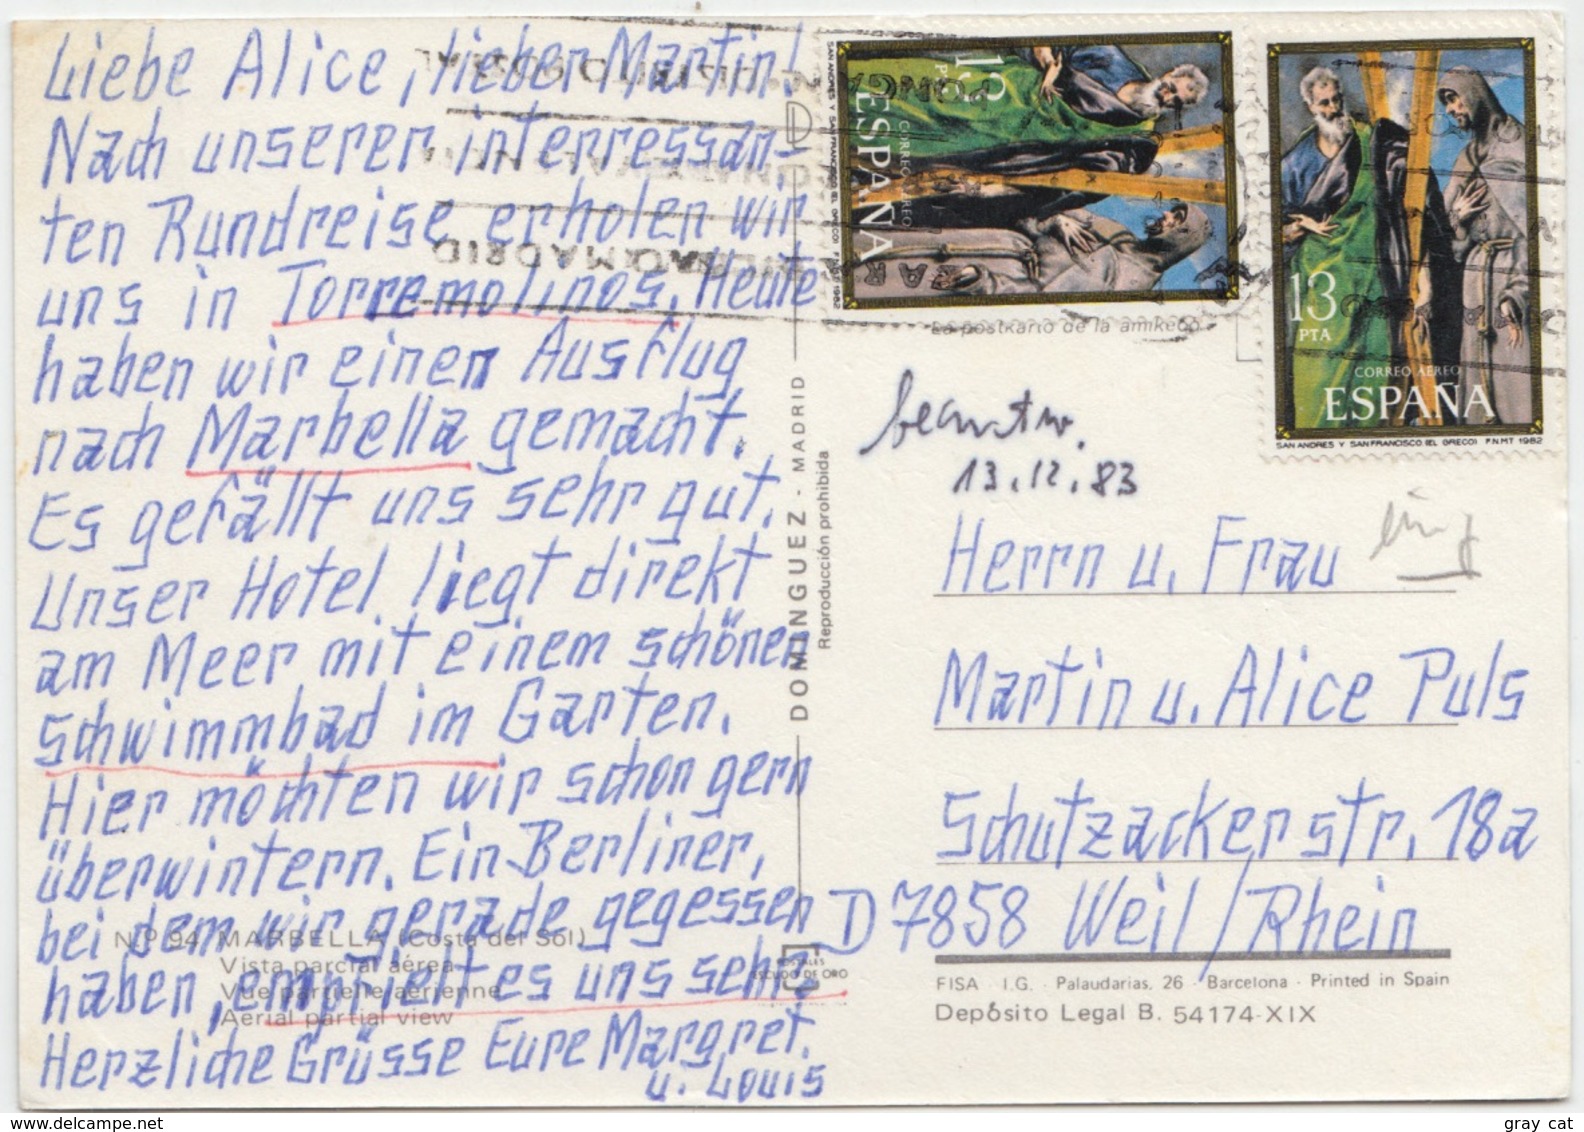 Liebe Alice, lieber Martin!
Nach unserer interressan-
ten Rundreise erholen wir
uns in Torremolinos. Heute
haben wir einen Ausflug
nach Marbella gemacht.
Es gefällt uns sehr gut.
Unser Hotel liegt direkt
am Meer mit einem schönen
Schwimmbad im Garten.
Hier möchten wir schon gern
überwintern. Ein Berliner,
bei dem wir gerade gegessen
haben, empfiehlt es uns sehr.
Herzliche Grüsse Eure Margret.
u. Louis
N.P. 94 MARBELLA (Costa del Sol)
Vista parcial aérea
Vue partielle aérienne
Aerial partial view
DOMINGUEZ - MADRID
Reproducción prohibida
POSTALES
ESCUDO DE ORO
MADRID
13 PTA
CORREO AEREO
ESPAÑA
SAN ANDRES Y SAN FRANCISCO (EL GRECO) F.N.M.T. 1982
13 PTA
CORREO AEREO
ESPAÑA
SAN ANDRES Y SAN FRANCISCO (EL GRECO) F.N.M.T. 1982
La postkarto de la amikeco
beantw.
13.12.83
Herrn u. Frau
Martin u. Alice Puls
Schutzackerstr. 18a
D 7858 Weil/Rhein
FISA - I.G. - Palaudarias, 26 - Barcelona - Printed in Spain
Depósito Legal B. 54174-XIX
gray cat